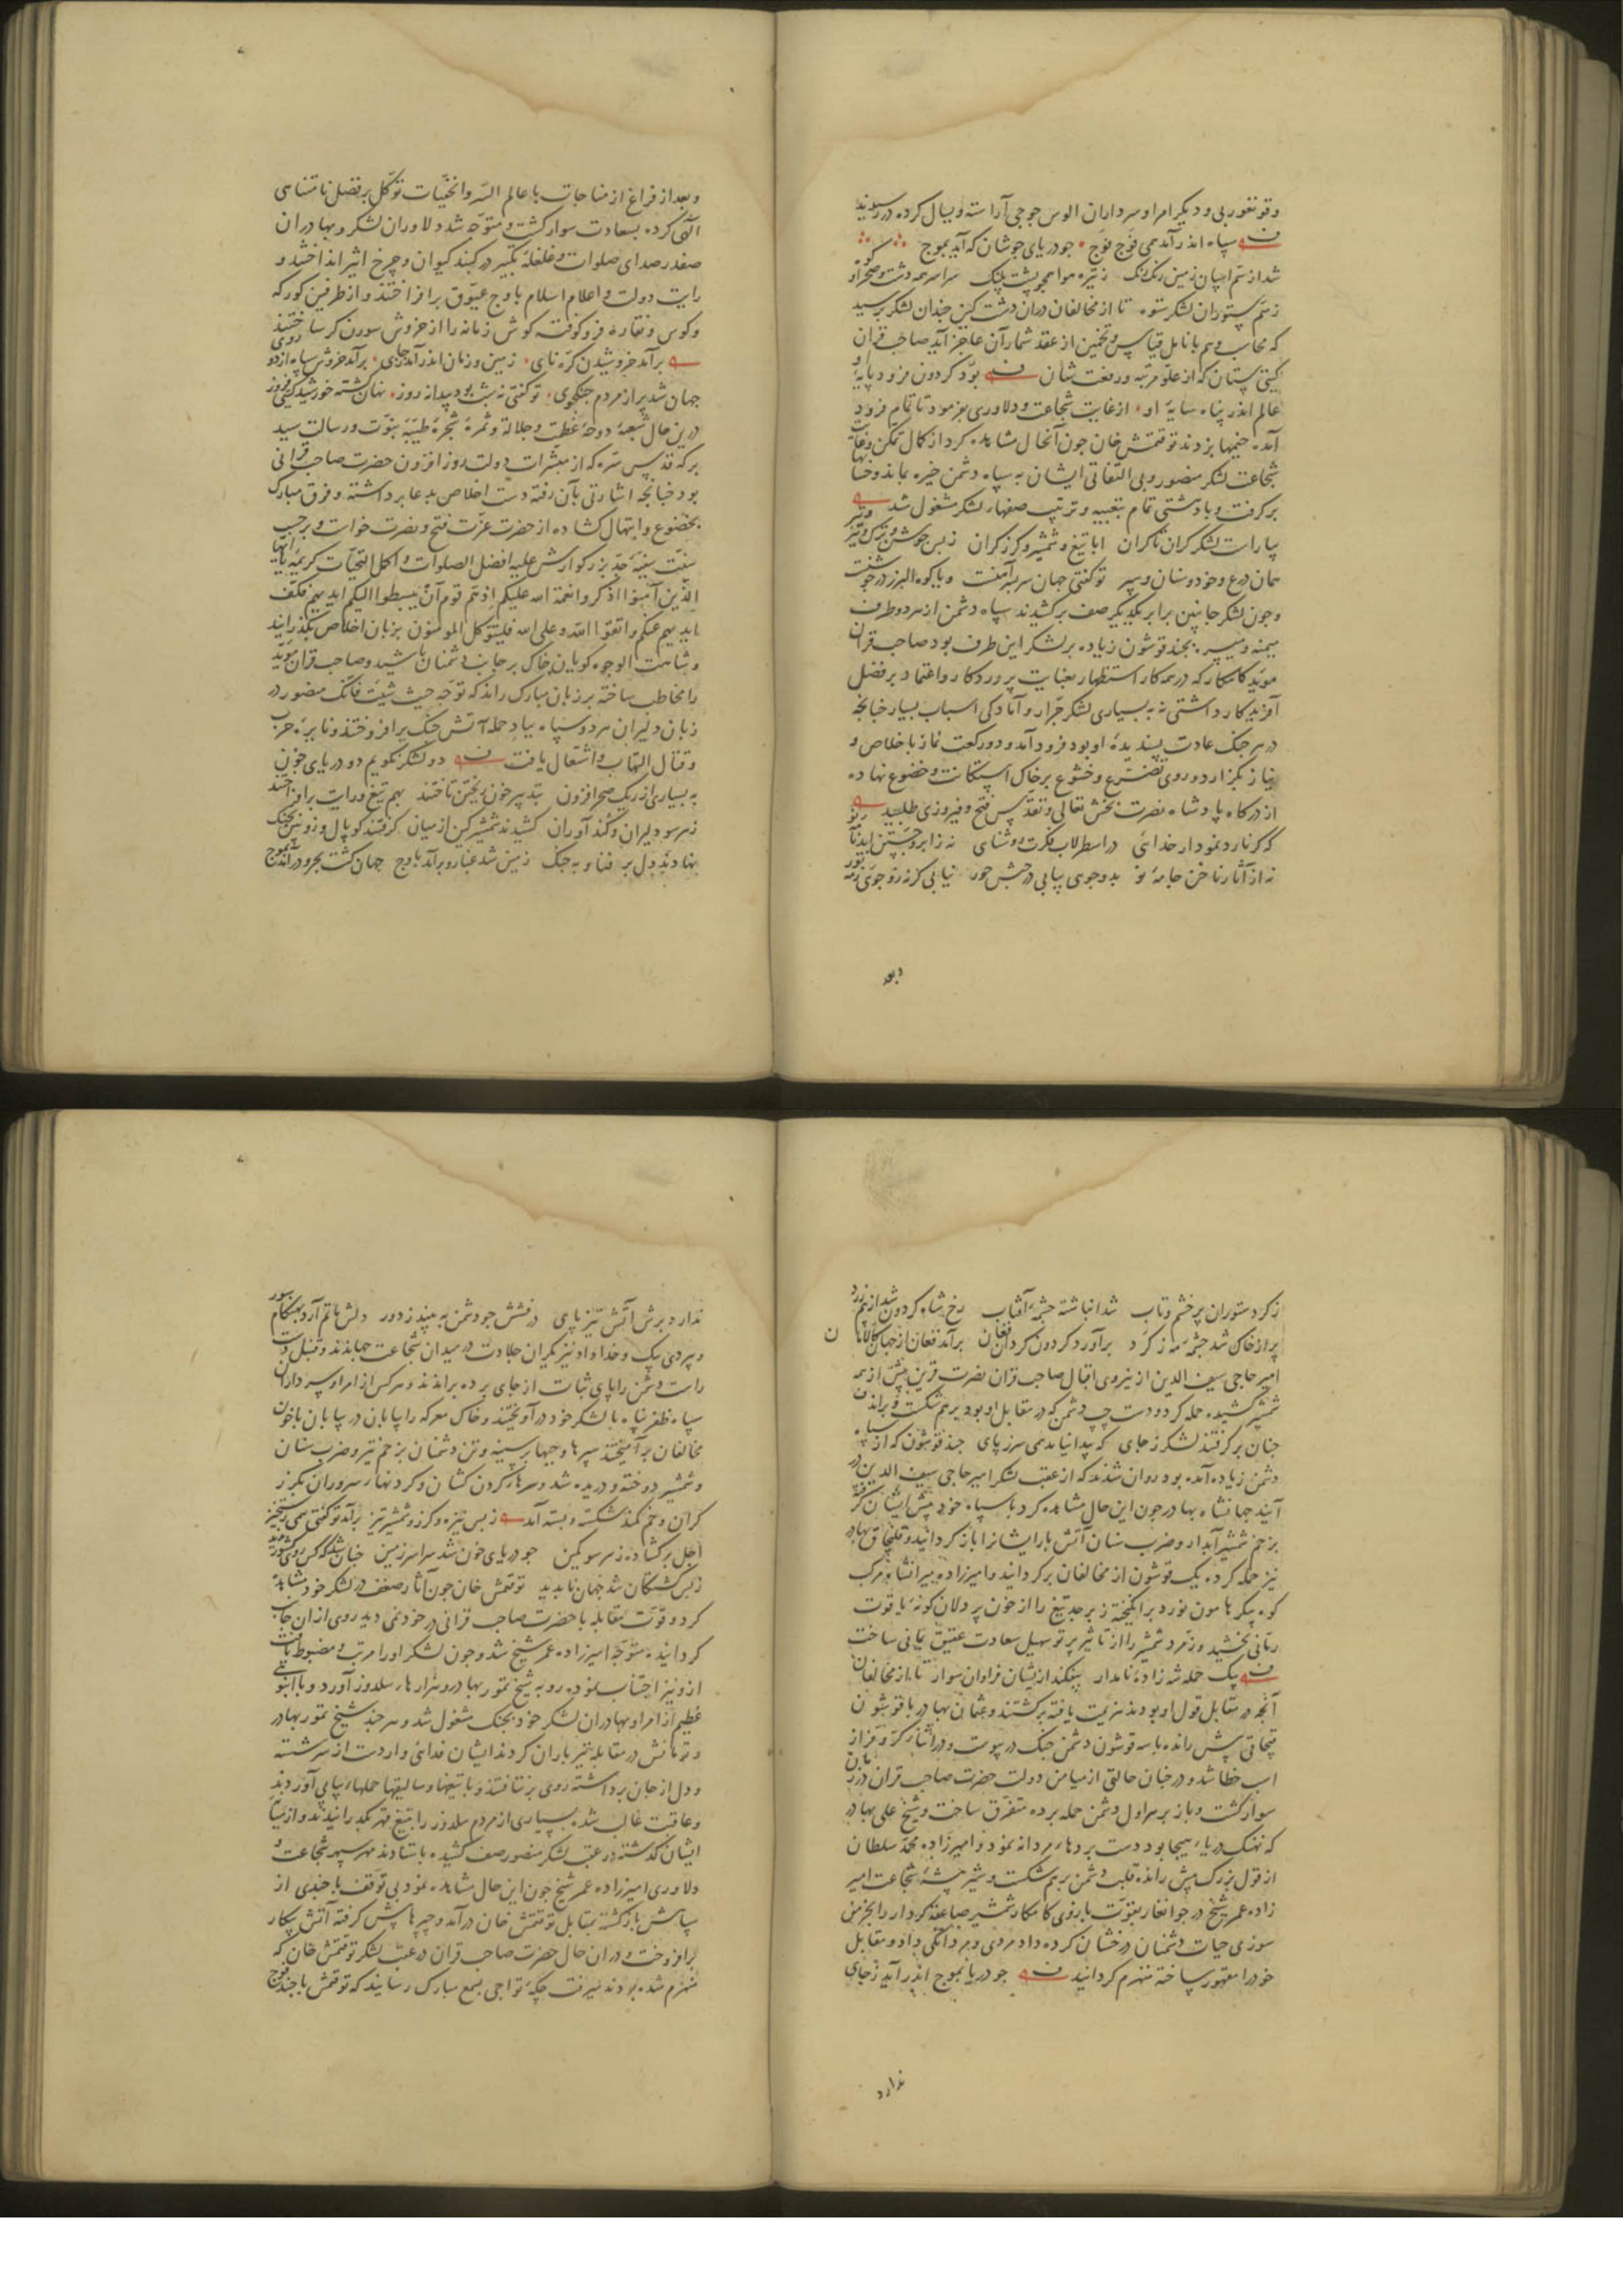 وقونغوربی و دیکر امرا و سرداران الوس جوجی آراسته و یسال کرده در رسیدند
سپاه اندر آمد همی فوج فوج جو دریای جوشان که آید بموج
شد از سم اسپان زمین رنک رنک ز نیزه هوا همجو پشت پلنک سراسر همه دشت و صحرا و کوه
ز سم ستوران لشکر ستوه تا از مخالفان دران دشت کین جندان لشکر برسید
که محاسب وهم بانامل قیاس و تخمین از عقد شمار آن عاجز آید صاحب قران
کیتی ستان که از علو مرتبه و رفعت شان بود کردون فرود پایه او
عالم اندر پناه سایه او از غایت شجاعت و دلاوری بفرمود تا تمام فرود
آمده خیمها بزدند توقتمش خان جون آنحال مشاهده کرد از کمال تمکن و غایت
شجاعت لشکر منصور و بی التفاتی ایشان به سپاه دشمن خیره بماند و حسابها
برکرفت و با دهشتی تمام بتعبیه و ترتیب صفهاء لشکر مشغول شد
بیاراست لشکر کران تا کران ابا تیغ و شمشیر و کرز کران ز بس جوشن و ترک و تیر و تبر
همان درع و خود و سنان و سپر تو کفتی جهان سربسر آهنست و یا کوه البرز در جوشنست
وجون لشکر جانبین برابر یکدیکر صف برکشیدند سپاه دشمن از هر دو طرف
میمنه و میسره بجند قوشون زیاده بر لشکر این طرف بود صاحب قران
موید کامکار که در همه کار استظهار بعنایت پروردکار و اعتماد بر فضل
آفریدکار داشتی نه به بسیاری لشکر جرار و آمادکی اسباب بسیار جنانجه
در هر جنک عادت پسندیده او بود فرود آمد و دو رکعت نماز باخلاص و
نیاز بکزارد و روی تضرع و خشوع بر خاک استکانت و خضوع نهاده
از درکاه پادشاه نصرت بخش تعالی و تقدس فتح و فیروزی طلبید
که کر نارد نمودار خدائی در اسطرلاب فکرت روشنائی نه ز ابرو جستن آید
نه از آثار ناخن جامه نو بدو جوی بیابی در حبش حور نیابی کر نه زو جوی
وبعد
وبعد از فراغ از مناجات با عالم السر و الخفیات توکل بر فضل نامتناهی
الهی کرده بسعادت سوار کشت و متوجه شد و دلاوران لشکر و بهادران
صفدر صدای صلوات و غلغله تکبیر در کنبد کیوان و چرخ اثیر انداختند و
رایت دولت و اعلام اسلام باوج عیوق برافراختند و از طرفین کورکه
وکوس و نقاره فروکوفته کوش زمانه را از خروش سورن کر ساختند
برآمد خروشیدن کره نای زمین و زمان اندر آمد ز جای برآمد خروش سپاه از دو روی
جهان شد پر از مردم جنکجوی تو کفتی نه شب بود پیدا نه روز نهان کشته خورشید کیتی فروز
درین حال شعبه دوحه عظمت و جلاله و ثمره شجره طیبه نبوت و رسالت سید
برکه قدس سره که از مبشرات دولت روز افزون حضرت صاحب قرانی
بود جنانجه اشارتی بآن رفته دست اخلاص بدعا برداشته و فرق مبارک
بخضوع و ابتهال کشاده از حضرت عزت فتح و نصرت خواست و برحسب
سنت سنیه جد بزرکوارش علیه افضل الصلوات و اکمل التحیات کریمه یا ایها
الذین آمنوا اذکروا نعمة الله علیکم اذ هم قوم أن یبسطوا الیکم ایدیهم فکف
ایدیهم عنکم و اتقوا الله و علی الله فلیتوکل المومنون بزبان اخلاص بکذرانید
و شاهت الوجوه کویان خاک بر جانب دشمنان پاشید و صاحب قران موید
را مخاطب ساخته بر زبان مبارک راند که توجه حیث شئت فانک منصور در
زبان دلیران هر دو سپاه بباد حمله آتش جنک برافروختند و نایره حرب
و قتال التهاب و اشتعال یافت دو لشکر نکویم دو دریای خون
به بسیاری از ریک صحرا فزون بتدبیر خون ریختن تاختند بهم تیغ و رایت برافراختند
ز هر سو دلیران و کندآوران کشیدند شمشیر کین از میان کرفتند کوپال و زوبین بجنک
نهادند دل بر فنا و به جنک زمین شد غبار و برآمد باوج جهان کشت بحر و درآمد بموج
ز کرد ستوران پر خشم و تاب شد انباشته جشمه آفتاب رخ شاه کردون شد از بیم زرد
پر از خاک شد جشم مه ز کرد برآورد کردون کردان فغان برآمد فغان از جهان کالامان
امیر حاجی سیف الدین از نیروی اقبال صاحب قران نصرت قرین پیش از همه
شمشیر کشیده حمله کرد و دست چپ دشمن که در مقابل او بود برهم شکست و براند
جنان برکرفتند لشکر ز جای که پیدا نیامد همی سر ز پای جند قوشون که از سپاه
دشمن زیاده آمده بود روان شدند که از عقب لشکر امیر حاجی سیف الدین در
آیند جهانشاه بهادر جون این حال مشاهده کرد با سپاه خود پیش ایشان کرفته
بزخم شمشیر آبدار و ضرب سنان آتش بار ایشانرا باز کردانید و قلنجاق بهادر
نیز حمله کرده یک قوشون از مخالفان برکردانید و امیرزاده میرانشاه مرکب
کوه پیکر هامون نورد برانکیخته زبرجد تیغ را از خون پردلان کونه یاقوت
رمانی بخشید و زمرد شمشیر را از تاثیر پرتو سهیل سعادت عقیق یمانی ساخت
بیک حمله شه زاده نامدار بیفکند ازیشان فراوان سوار تا از مخالفان
آنچه در مقابل قول او بودند هزیمت یافته برکشتند و عثمان بهادر با قوشون
قبجاقی پیش رانده با سه قوشون دشمن جنک در پیوست و در اثناء کر و فر از
اسب خطا شد و در جنان حالتی از میامن دولت حضرت صاحب قران
سوار کشت و باز بر هراول دشمن حمله برده متفرق ساخت و شیخ علی بهادر
که نهنک دریاء هیجا بود دست بردهاء مردانه نمود و امیرزاده محمد سلطان
از قول بزرک پیش رانده قلب دشمن برهم شکست و شیر بیشه شجاعت امیر
زاده عمر شیخ در جوانغار بقوت بازوی کامکار شمشیر صاعقه کردار را بخرمن
سوزی حیات دشمنان درخشان کرده داد مردی و مردانکی داد و مقابل
خود را مقهور ساخته منهزم کردانید جو دریا بموج اندر آید ز جای
ندارد
ندارد برش آتش تیز پای درفشش جو دشمن به بیند ز دور دلش ماتم آرد بهنکام سور
و بیردی بیک و خداداد نیز یکران جلادت در میدان شجاعت جهانیدند و قنبل دست
راست دشمن را پای ثبات از جای برده براندند و هر کس از امرا و سرداران
سپاه ظفر پناه با لشکر خود درآویختند و خاک معرکه را پایان در پایان با خون
مخالفان برآمیختند سپرها و جیبها بر سینه و تن دشمنان بزخم تیر و ضرب سنان
و شمشیر دوخته و دریده شد و سرهاء کردن کشان و کردنهاء سروران بکرز
کران و خم کمند شکسته و بسته آمد ز بس نیزه و کرز و شمشیر تیز برآمد تو کفتی همی رستخیز
اجل برکشاده ز هر سو کمین جو دریای خون شد سراسر زمین جنان شد که کس روی کشور ندید
ز بس کشتکان شد جهان نابدید توقتمش خان جون آثار ضعف در لشکر خود مشاهده
کرد و قوت مقابله با حضرت صاحب قرانی در خود نمی دید روی از ان جانب
کردانیده متوجه امیرزاده عمر شیخ شد و جون لشکر او را مرتب و مضبوط یافت
ازو نیز اجتناب نموده رو به شیخ تمور بهادر و هزارهاء سلدوز آورد و با انبوهی
عظیم از امرا و بهادران لشکر خود بجنک مشغول شد و هر جند شیخ تمور بهادر
و ترمانش در مقابله تیر باران کردند ایشان فدائی وار دست از سر شسته
و دل از جان برداشته روی برنتافتند و با تیغها و سالیقها حملهاء پیاپی آوردند
و عاقبت غالب شده بسیاری از مردم سلدوز را بتیغ قهر بکذرانیدند و از میان
ایشان کذشته در عقب لشکر منصور صف کشیده باستادند مهر سپهر شجاعت و
دلاوری امیرزاده عمر شیخ جون این حال مشاهده نمود بی توقف با جندی از
سپاهش بازکشته بمقابل توقتمش خان درآمد و چپرها پیش کرفته آتش پیکار
برافروخت و دران حال حضرت صاحب قران در عقب لشکر توقتمش خان که
منهزم شده بودند میرفت چکه تواجی بسمع مبارک رسانید که توقتمش با جند فوج